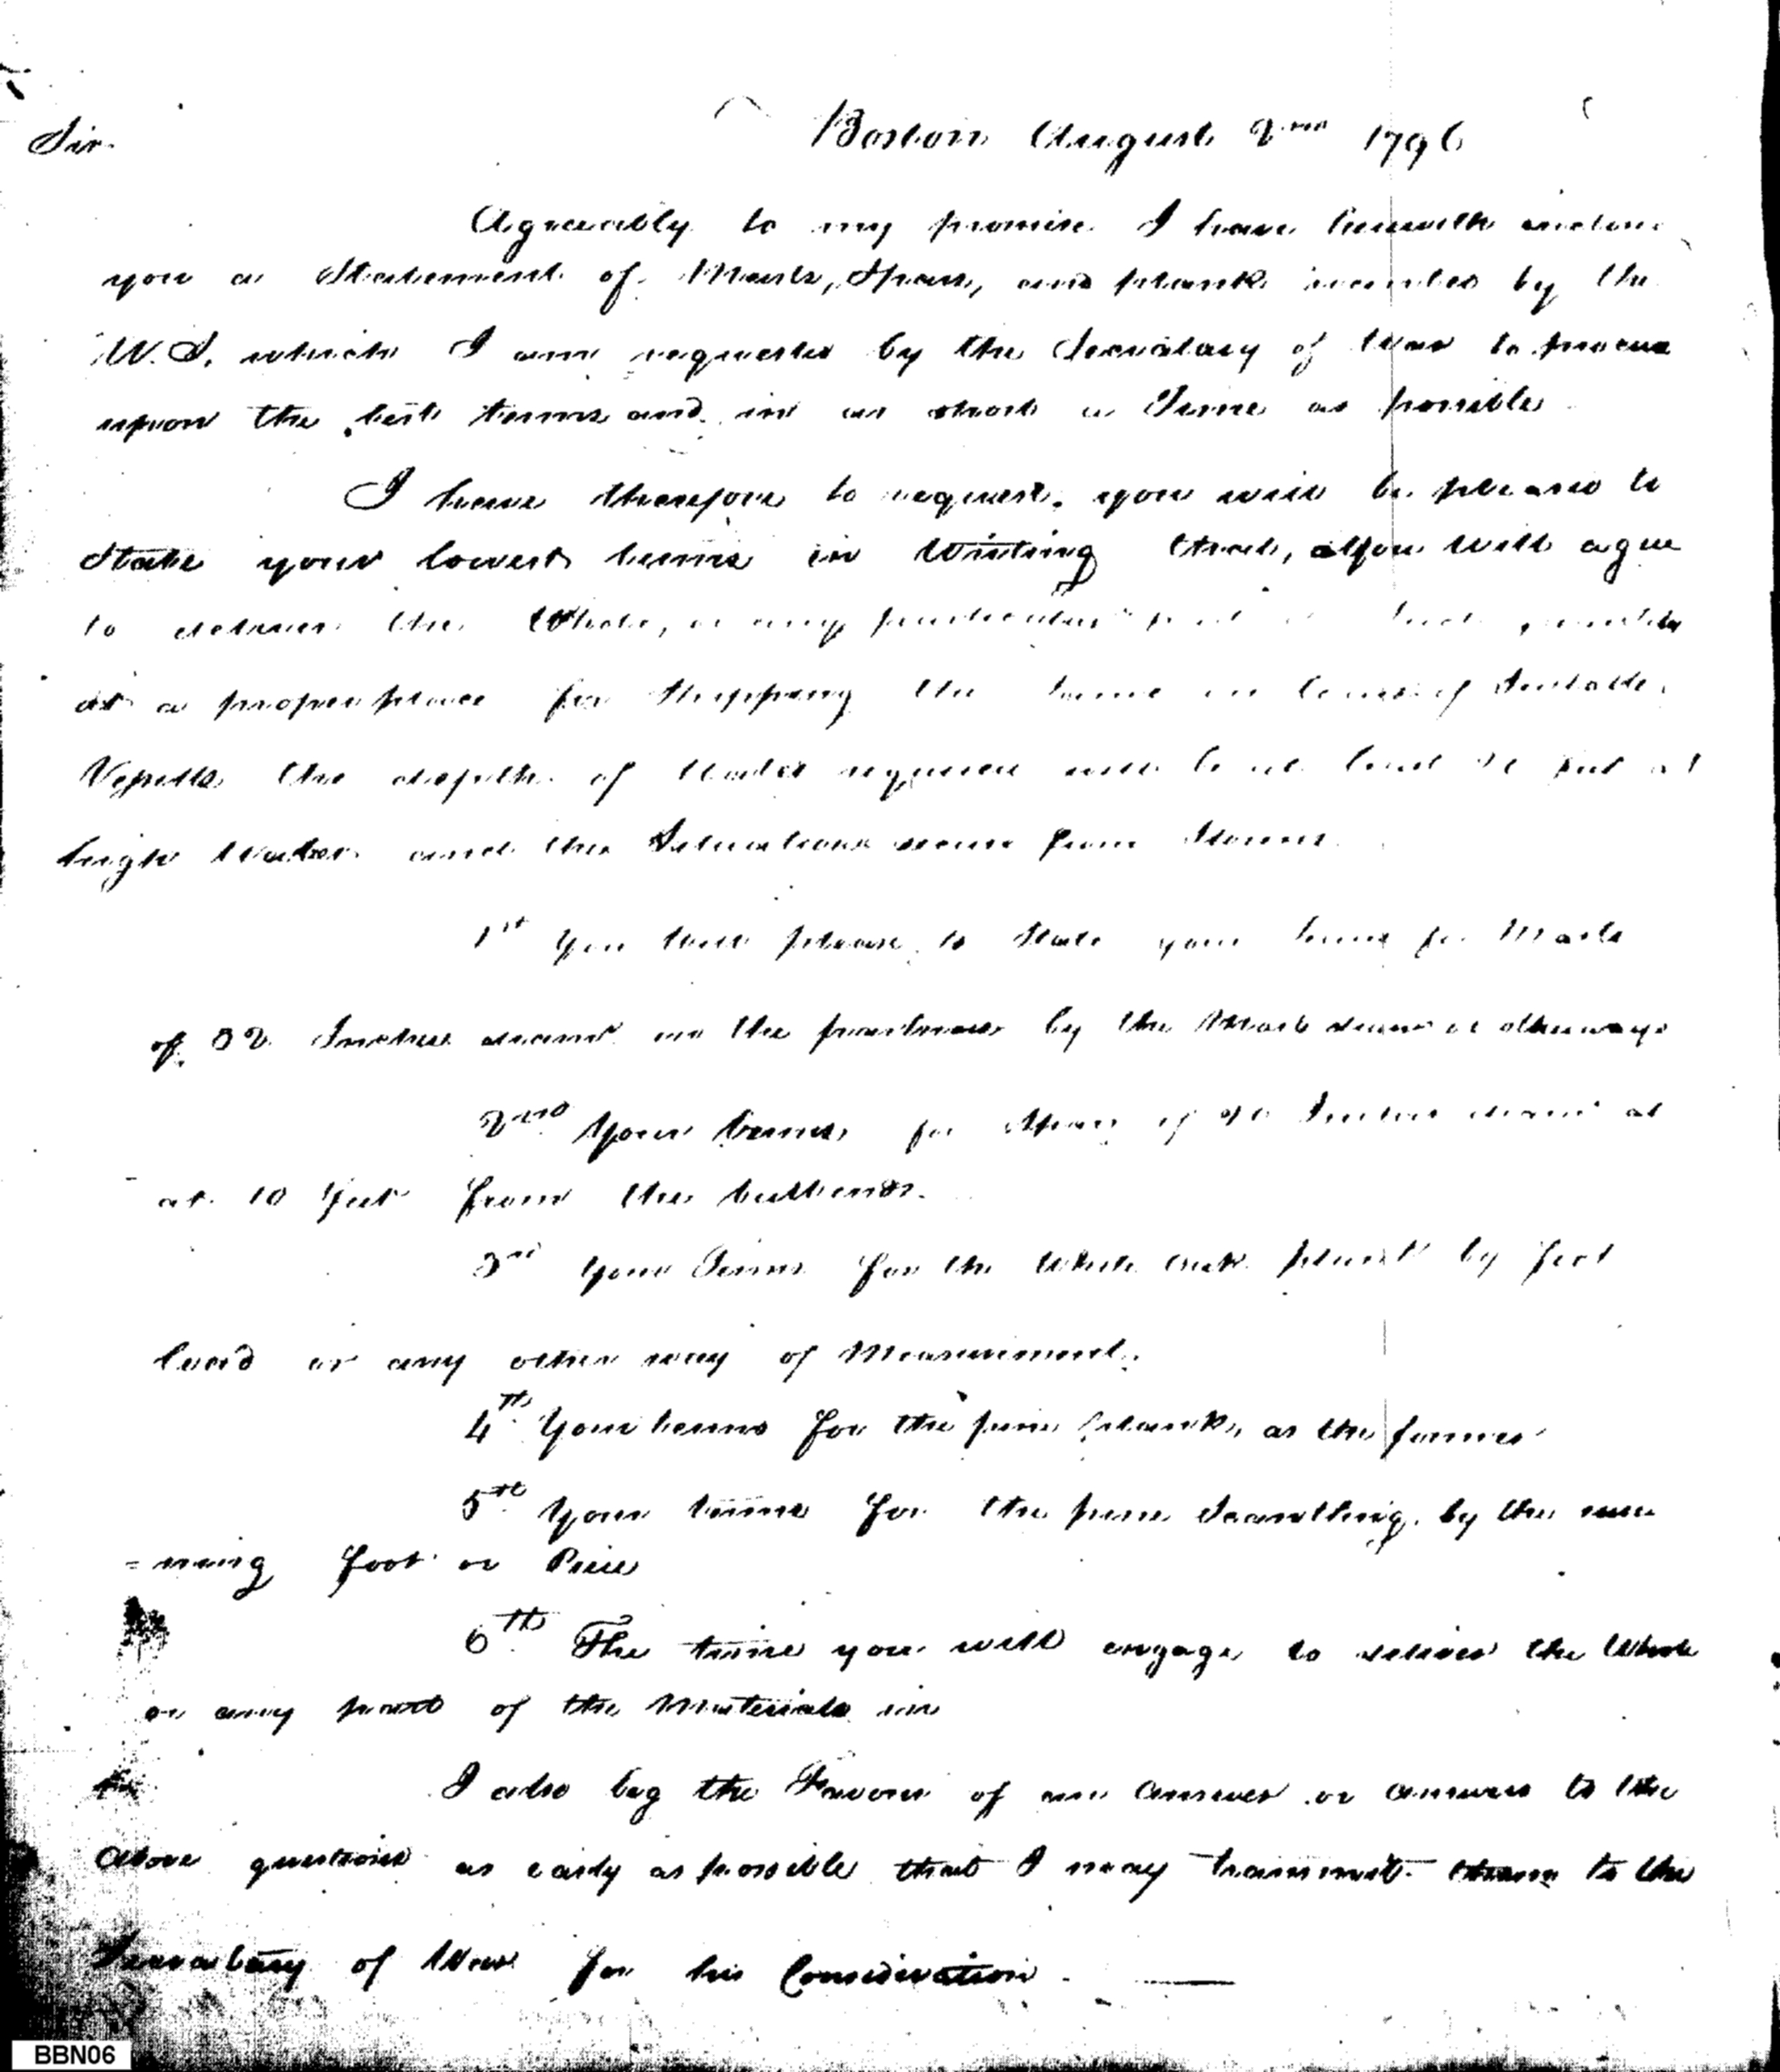 Sir.
Boston August 2nd 1796
Agreeably to my promise I have herewith inclose
you a Statement of Masts, Spars, and plank wanted by the
U. S. which I am requested by the Secretary of War to procure
upon the best terms and in as short a Time as possible
I have therefore to request. you will be pleased to
State your lowest terms in Writing that, you will agree
to deliver the Whole, or any particular part
at a proper place for Shipping the same in Suitable
Vessells the depth of Water required will be at least feet at
high Water and the Situations secure from Storms
1st You will please to State your terms for Masts
of 32 Inches diamr in the partners by the Mast or otherways
2nd Your terms for Spars of Inches diamr at
at 10 feet from the buttends.
3rd Your Terms for the White Oak plank by feet
load or any other way of Measurement.
4th Your terms for the pine plank, as the former
5th Your terms for the pine Scantling by the run
=ning foot or Piece
6th The time you will engage to deliver the Whole
or any part of the Materials in
I also beg the Favour of an answer or answers to the
above questions as early as possible that I may transmit them to the
Secretary of War for his Consideration.
BBN06